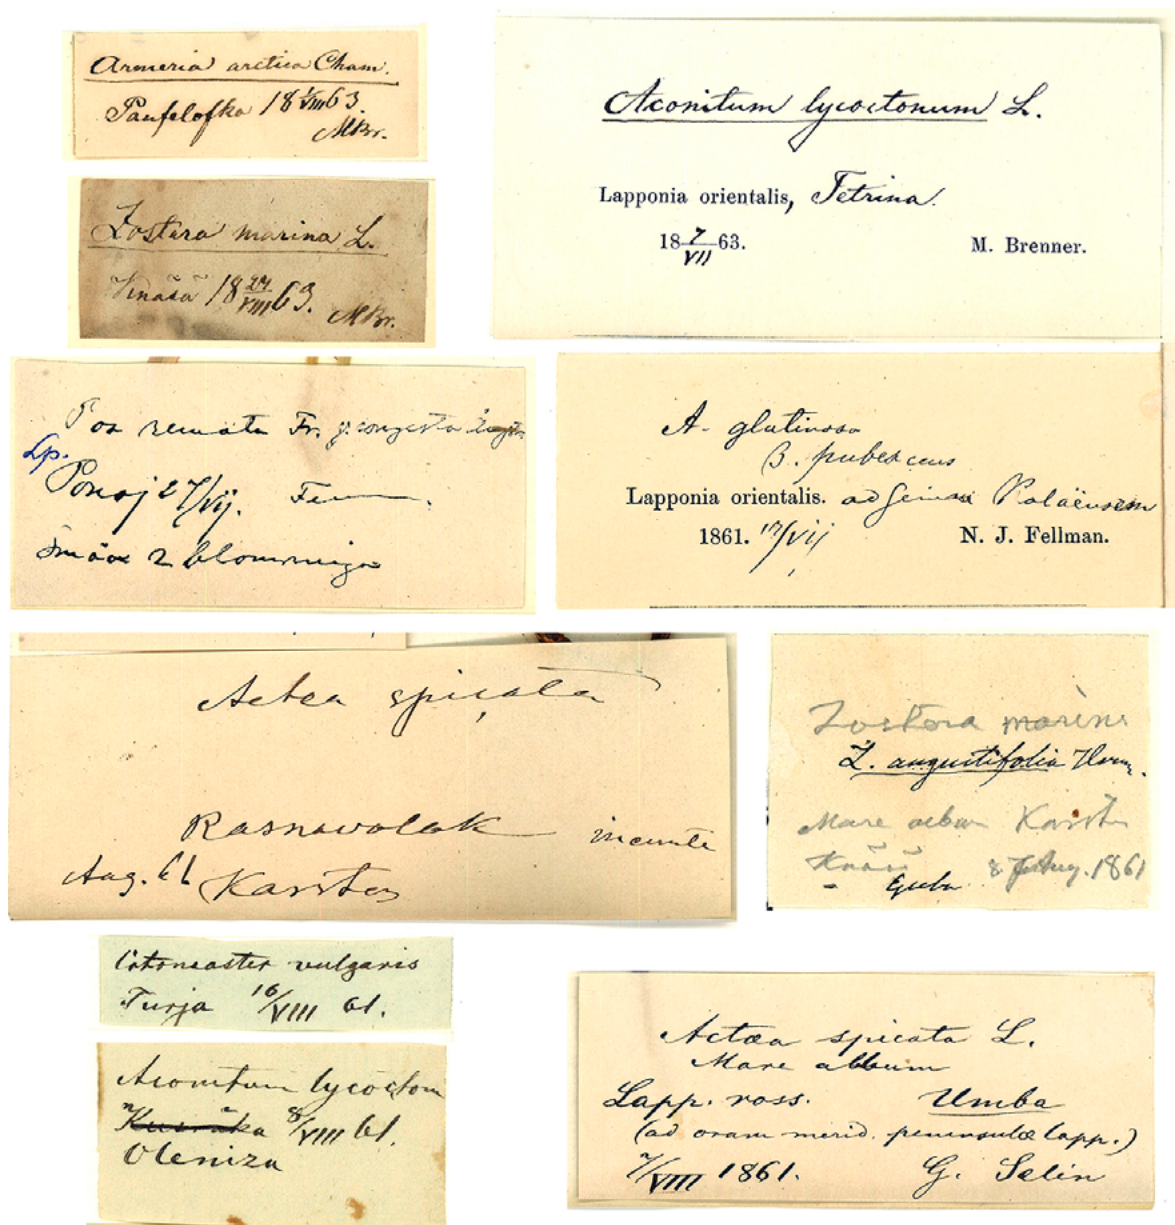 Armeria arctica Cham.
Panfelofka 18 1/VIII 63.
MBr.
Aconitum lycoctonum L.
Lapponia orientalis, Tetrina.
18 7/VII 63. M. Brenner.
Zostera marina L.
Knäsä 18 24/VIII 63.
MBr.
Poa remota Fr.
Lp.
Ponoj 27/vij.
2 blommiga
A. glutinosa
β. pubescens
Lapponia orientalis. ad
1861. 17/vij N. J. Fellman.
Actea spicata
Rasnavolok ineunte
Aug. 61 Karsten
Zostera marina
Z. angustifolia Horn.
Mare album Karsten
Guba 8 Aug. 1861
Cotoneaster vulgaris
Turja 16/VIII 61.
Aconitum lycoctonum
8/VIII 61.
Oleniza
Actæa spicata L.
Mare album
Lapp. ross. Umba
(ad oram merid. peninsulæ lapp.)
7/VIII 1861. G. Selin